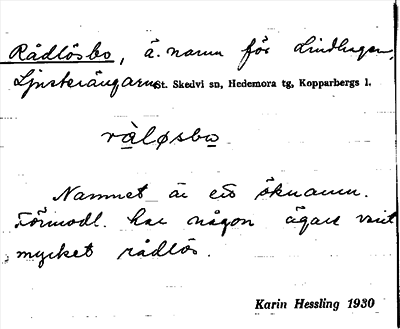 Rådlösbo, ä. namn för Lindhagen,
Ljusterängarna St. Skedvi sn, Hedemora tg, Kopparbergs l.
ràløsbo
Namnet är ett öknamn.
Förmodl. har någon ägare varit
mycket rådlös.
Karin Hessling 1930